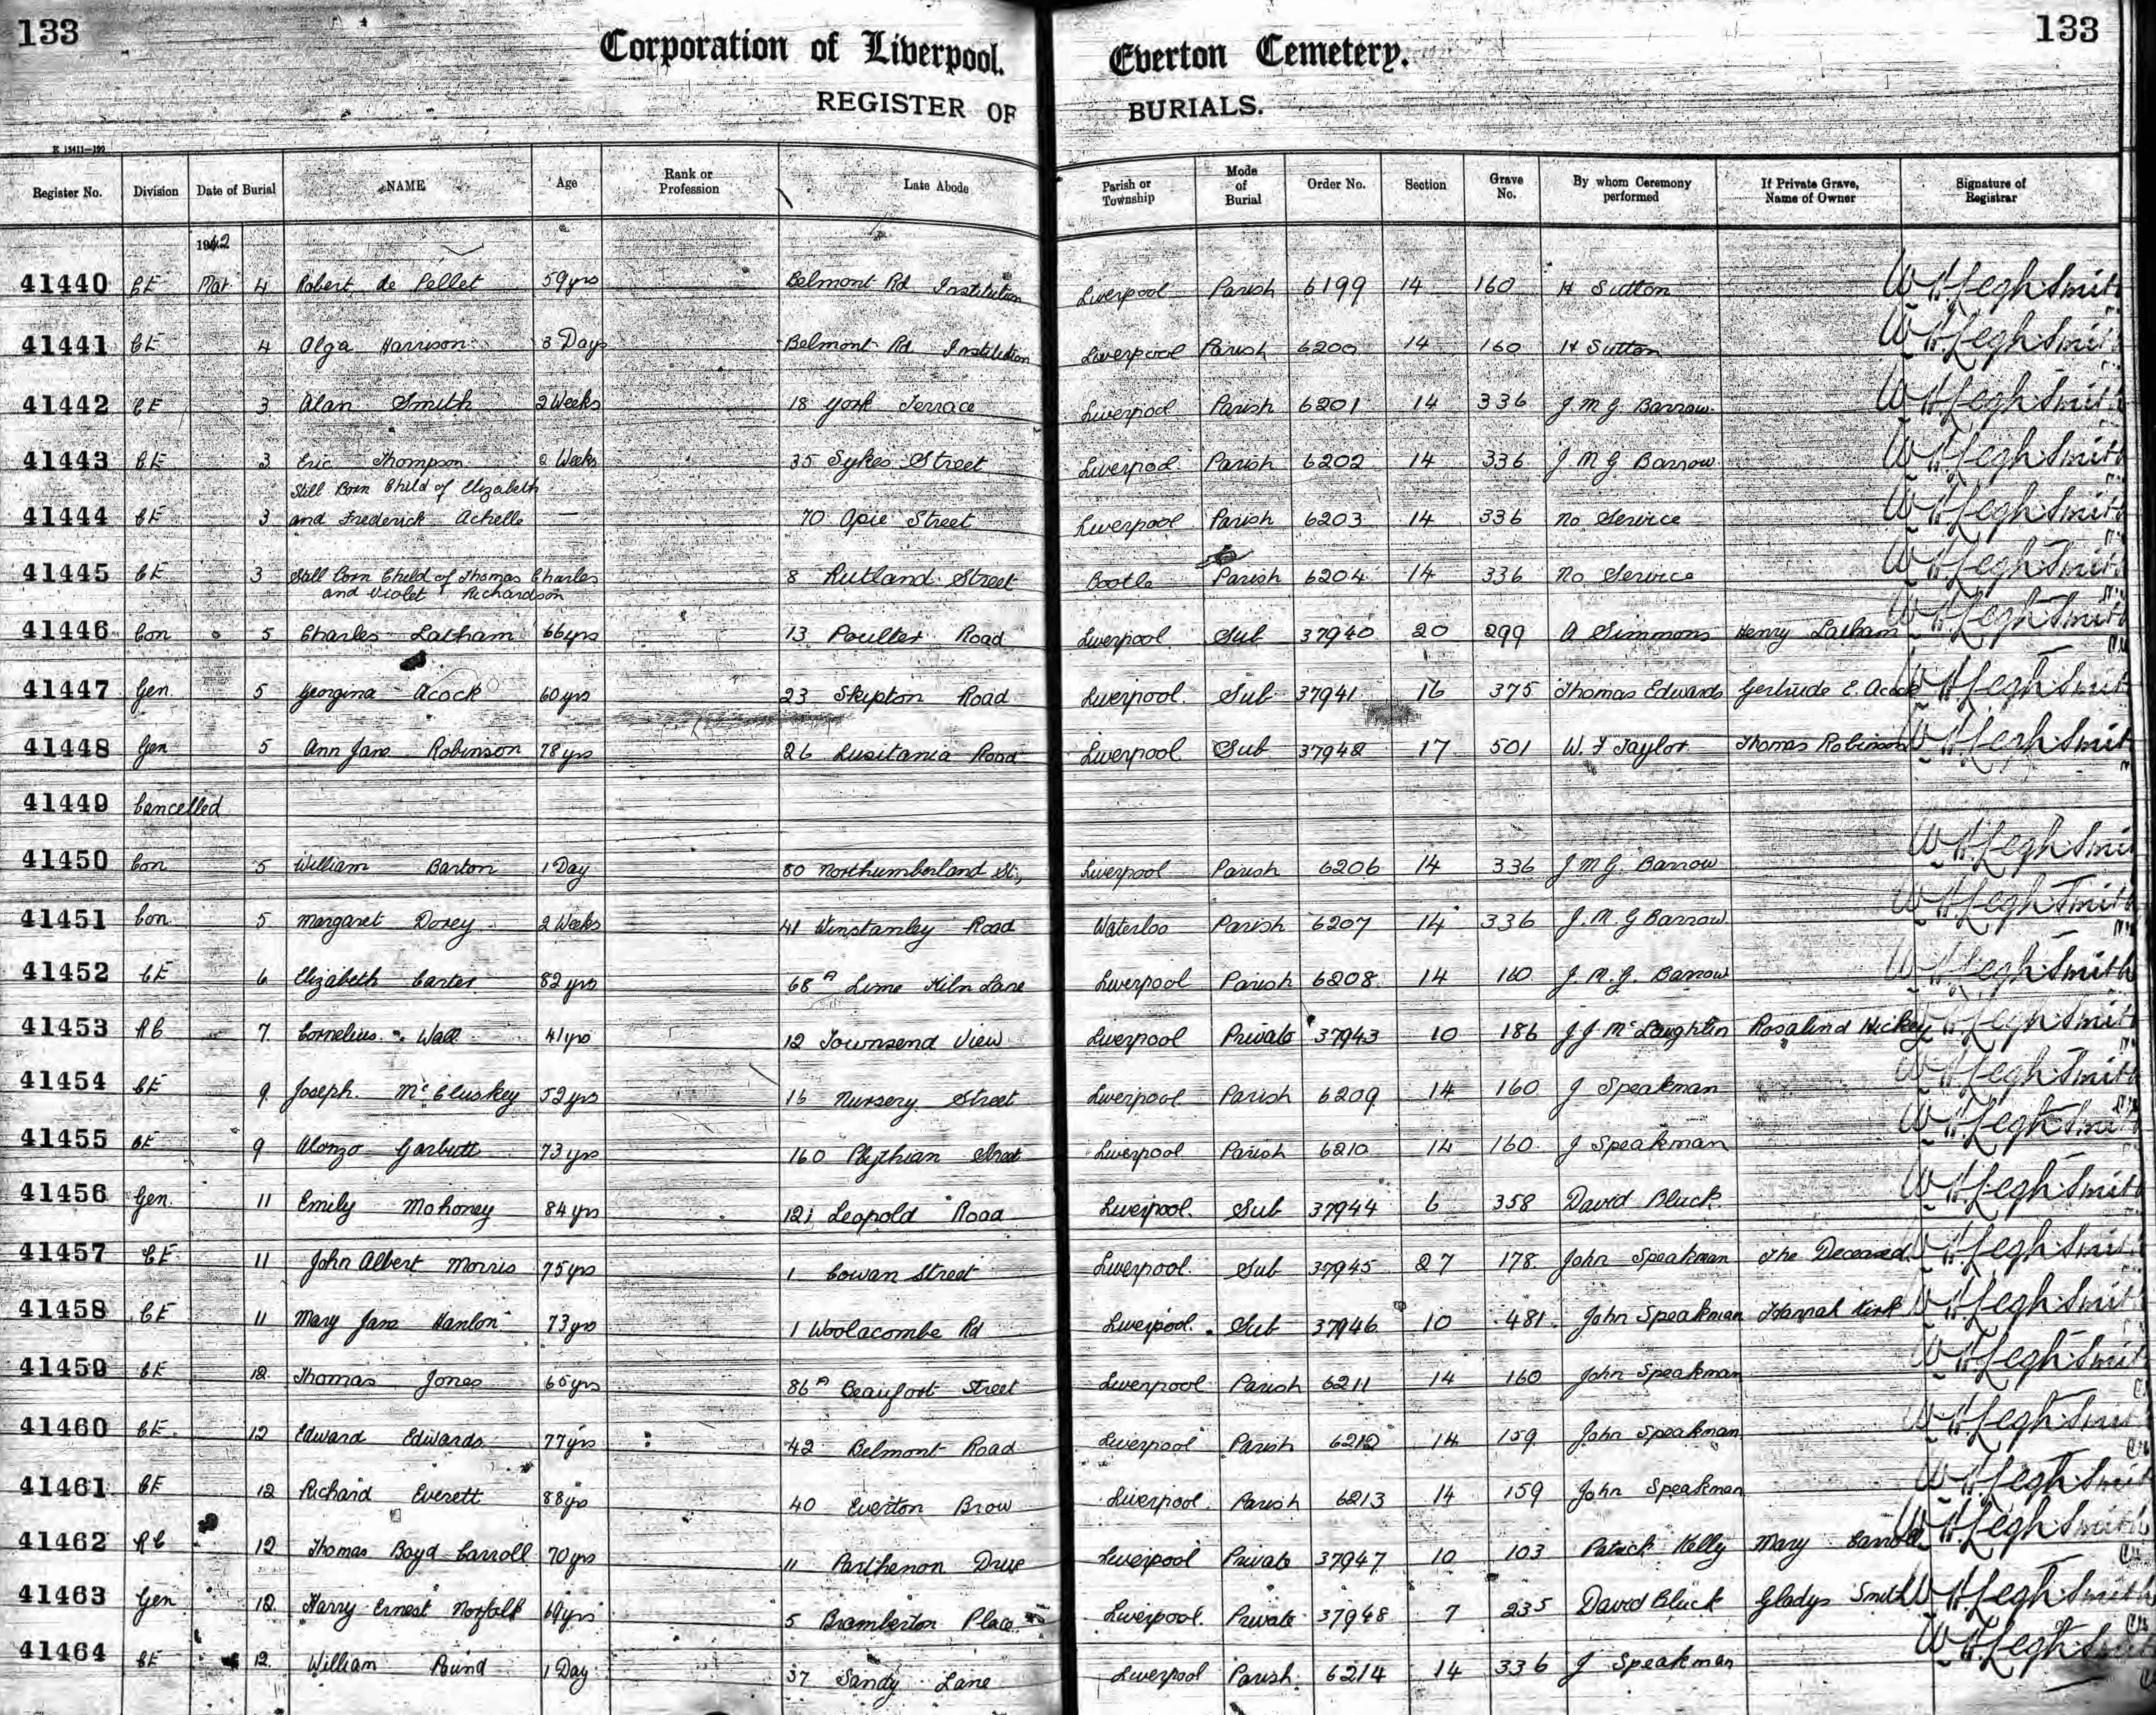 133 133
Corporation of Liverpool. Everton Cemetery.
REGISTER OF BURIALS.
Register No. Division Date of Burial NAME Age Rank or Profession Late Abode Parish or Township Mode of Burial Order No. Section Grave No. By whom Ceremony performed If Private Grave, Name of Owner Signature of Registrar
1942
41440 CE Mar 4 Robert de Pellet 59 yrs Belmont Rd Institution Liverpool Parish 6199 14 160 H Sutton W H Legh Smith
41441 CE 4 Olga Harrison 3 Days Belmont Rd Institution Liverpool Parish 6200 14 160 H Sutton W H Legh Smith
41442 CE 3 Alan Smith 2 Weeks 18 York Terrace Liverpool Parish 6201 14 336 J M G Barrow W H Legh Smith
41443 CE 3 Eric Thompson 2 Weeks 35 Sykes Street Liverpool Parish 6202 14 336 J M G Barrow W H Legh Smith
Still Born Child of Elizabeth
41444 CE 3 and Frederick Achelle — 70 Opie Street Liverpool Parish 6203 14 336 No Service W H Legh Smith
41445 CE 3 Still Born Child of Thomas Charles 8 Rutland Street Bootle Parish 6204 14 336 No Service W H Legh Smith
and Violet Richardson
41446 Con 5 Charles Latham 66 yrs 13 Poulter Road Liverpool Sub 37940 20 299 A Simmons Henry Latham W H Legh Smith
41447 Gen 5 Georgina Acock 60 yrs 23 Skipton Road Liverpool Sub 37941 16 375 Thomas Edwards Gertrude E. Acock W H Legh Smith
41448 Gen 5 Ann Jane Robinson 78 yrs 26 Lusitania Road Liverpool Sub 37942 17 501 W. F Taylor Thomas Robinson W H Legh Smith
41449 Cancelled
41450 Con 5 William Barton 1 Day 80 Northumberland St., Liverpool Parish 6206 14 336 J M G Barrow W H Legh Smith
41451 Con 5 Margaret Dorey 2 Weeks 41 Winstanley Road Waterloo Parish 6207 14 336 J. M. G Barrow W H Legh Smith
41452 CE 6 Elizabeth Carter 82 yrs 68A Lime Kiln Lane Liverpool Parish 6208 14 160 J. M. G. Barrow W H Legh Smith
41453 RC 7 Cornelius Wall 41 yrs 12 Townsend View Liverpool Private 37943 10 186 J J McLoughlin Rosalind Hickey W H Legh Smith
41454 CE 9 Joseph McCluskey 52 yrs 16 Nursery Street Liverpool Parish 6209 14 160 J Speakman W H Legh Smith
41455 CE 9 Alonzo Garbutt 73 yrs 160 Pythian Street Liverpool Parish 6210 14 160 J Speakman W H Legh Smith
41456 Gen. 11 Emily Mahoney 84 yrs 121 Leopold Road Liverpool Sub 37944 6 358 David Bluck W H Legh Smith
41457 CE 11 John Albert Morris 75 yrs 1 Cowan Street Liverpool Sub 37945 27 178 John Speakman The Deceased W H Legh Smith
41458 CE 11 Mary Jane Hanlon 73 yrs 1 Woolacombe Rd Liverpool Sub 37946 10 481 John Speakman Hannah Kirk W H Legh Smith
41459 CE 12 Thomas Jones 65 yrs 86A Beaufort Street Liverpool Parish 6211 14 160 John Speakman W H Legh Smith
41460 CE 12 Edward Edwards 77 yrs 42 Belmont Road Liverpool Parish 6212 14 159 John Speakman W H Legh Smith
41461 CE 12 Richard Everett 88 yrs 40 Everton Brow Liverpool Parish 6213 14 159 John Speakman W H Legh Smith
41462 RC 12 Thomas Boyd Carroll 70 yrs 11 Parthenon Drive Liverpool Private 37947 10 103 Patrick Kelly Mary Carroll W H Legh Smith
41463 Gen 12 Harry Ernest Norfolk 69 yrs 5 Bramberton Place Liverpool Private 37948 7 235 David Bluck Gladys Smith W H Legh Smith
41464 CE 12 William Pound 1 Day 37 Sandy Lane Liverpool Parish 6214 14 336 J Speakman W H Legh Smith